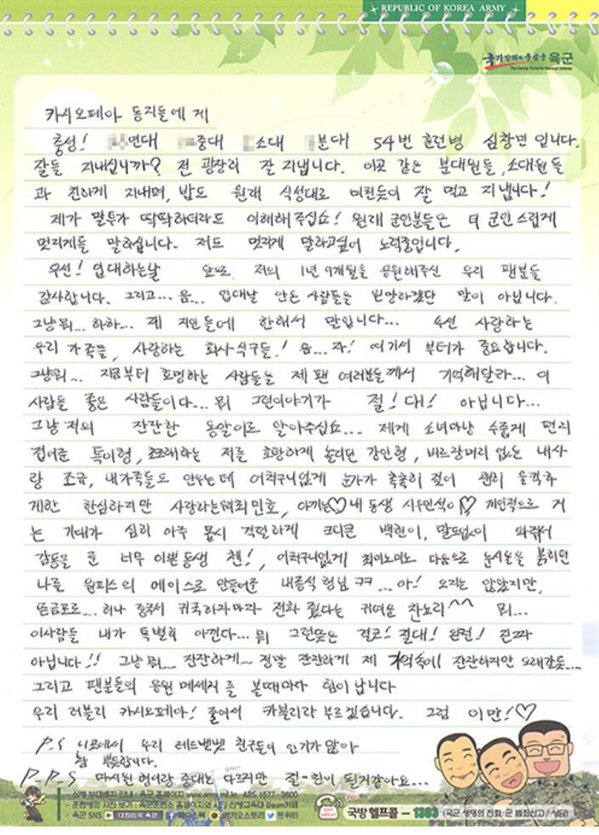 REPUBLIC OF KOREA ARMY
육군
카시오페아 동지들에게
충성! 연대 중대 소대 분대! 54번 훈련병 심창민입니다.
잘들 지내십니까? 전 굉장히 잘 지냅니다. 이곳 같은 분대원들, 소대원들
과 친하게 지내며, 밥도 원래 식성대로 미친듯이 잘 먹고 지냅니다!
제가 말투가 딱딱하더라도 이해해주십쇼! 원래 군인분들은 더 군인스럽게
멋지게들 말하십니다. 저도 멋지게 말하고싶어 노력중입니다.
우선! 입대하는날 저의 1년 9개월을 응원해주신 우리 팬분들
감사합니다. 그리고... 음... 입대날 안온 사람들을 원망하겠단 말이 아닙니다.
그냥뭐... 하하... 제 지인들에 한해서 말입니다... 우선 사랑하는
우리 가족들, 사랑하는 회사식구들! 음...자! 여기서부터가 중요합니다.
그냥뭐... 지금부터 호명하는 사람들은 제 팬 여러분들께서 기억해달라... 이
사람들 좋은 사람들이다... 뭐 그런이야기가 절!대! 아닙니다...
그냥 저의 잔잔한 옹알이로 알아주십쇼... 제게 소녀마냥 수줍게 편지
건네준 특이형, 초조해하는 저를 호탕하게 놀리던 강인형, 버르장머리 없는 내사
랑 조규, 내가족들도 안우는데 어처구니없게 눈가가 촉촉히 젖어 괜히 울컥하
게한 한심하지만 사랑하는 최민호, 아끼는♡내 동생 시우민석이♡ 개인적으로 거
는 기대가 심히 아주 몹시 격렬하게 크디큰 백현이, 말도없이 와줘서
감동을 준 너무 이쁜동생 첸!, 어처구니없게 최미노미노 다음으로 눈시울을 붉히던
나를 원피스의 에이스로 만들어준 내종석 형님 ㅋㅋ...아! 오지는 않았지만,
뜬금포로... 허나 중국서 귀국하자마자 전화 줬다는 귀여운 찬뇨리^^ 뭐...
이사람들 내가 특별히 아낀다... 뭐 그런뜻은 결코! 절대! 완전! 진짜
아닙니다!! 그냥 뭐... 잔잔하게~ 정말 잔잔하게 제 기억속에 잔잔하지만 오래갈듯...
그리고 팬분들의 응원 메세지를 볼때마다 힘이 납니다
우리 러블리 카시오페아! 줄여서 카블리라 부르겠습니다. 그럼 이만!♡
P.S 니코에서 우리 레드벨벳 친구들이 인기가 많아
참 뿌듯합니다.
P.P.S 마시된 형이랑 중대는 다르지만 전-원이 될거같아요...
신병 부대배치 안내 : 육군 홈페이지 www.army.mil.kr, ARS 1577-9600
훈련병의 사진 보기 : 육군훈련소 홈페이지와 사단 신병교육대 Daum카페
육군 SNS 대한민국 육군 페이스북 카카오스토리 트위터
국방헬프콜 - 1303 (국군 생명의 전화, 군 범죄신고 / 상담)